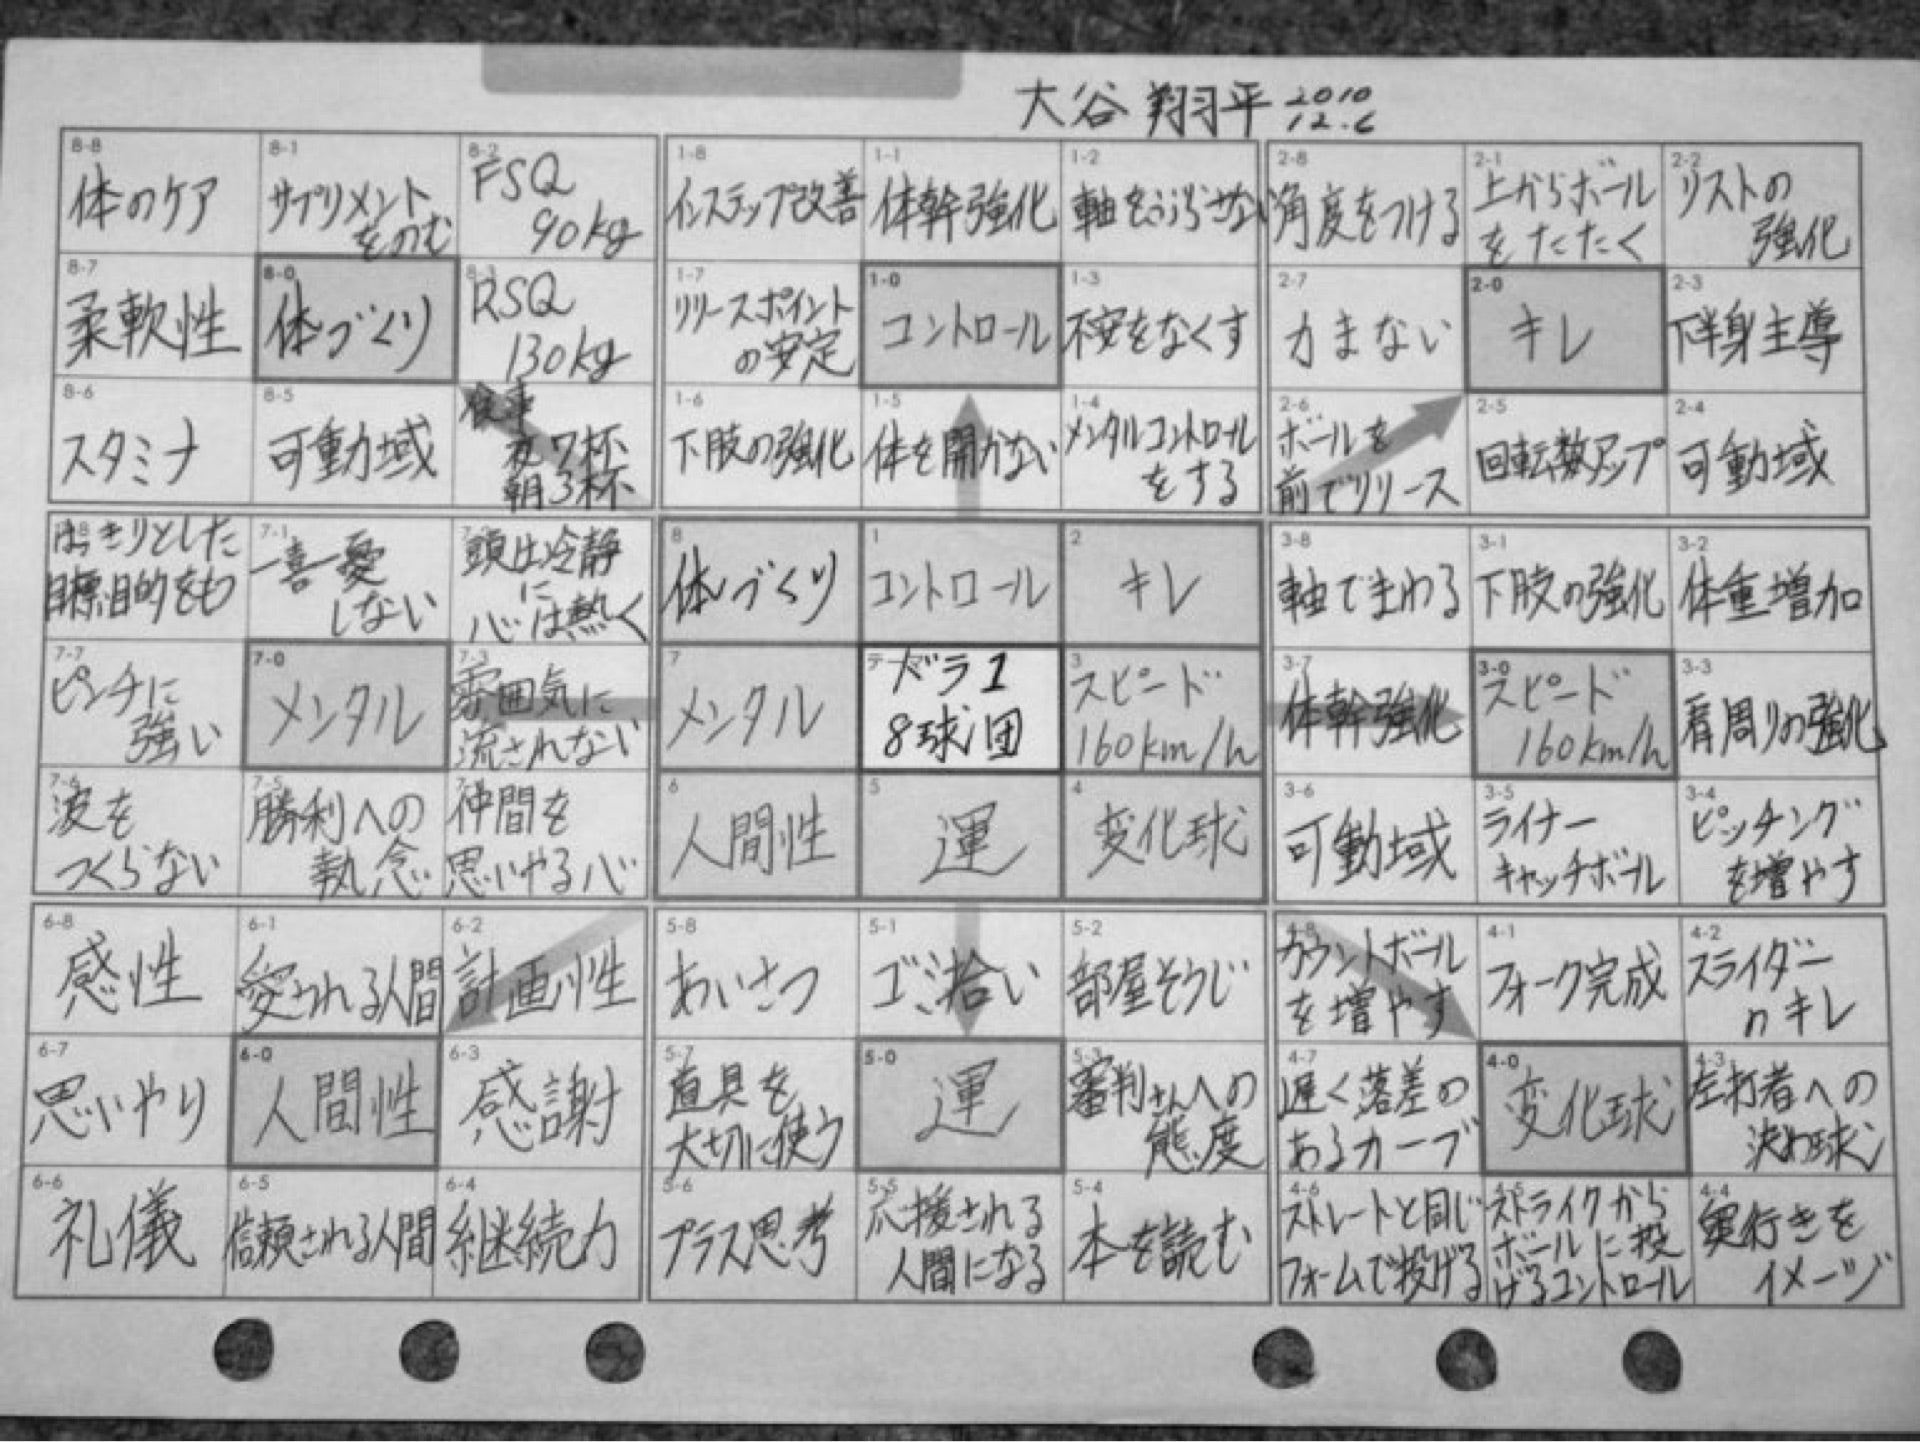 大谷 翔平 2010
12.6
8-8 8-1 8-2 1-8 1-1 1-2 2-8 2-1 2-2
体のケア
サプリメント
をのむ
FSQ
90kg
インステップ改善
体幹強化
軸をぶらさない
角度をつける
上からボール
をたたく
リストの
強化
8-7 8-0 8-3 1-7 1-0 1-3 2-7 2-0 2-3
柔軟性
体づくり
RSQ
130kg
リリースポイント
の安定
コントロール
不安をなくす
力まない
キレ
下半身主導
8-6 8-5 1-6 1-5 1-4 2-6 2-5 2-4
スタミナ
可動域
食事
夜7杯
朝3杯
下肢の強化
体を開かない
メンタルコントロール
をする
ボールを
前でリリース
回転数アップ
可動域
7-1 8 1 2 3-8 3-1 3-2
はっきりとした
目標、目的をも
一喜一憂
しない
頭は冷静
に
心は熱く
体づくり
コントロール
キレ
軸でまわる
下肢の強化
体重増加
7-7 7-0 7-3 7 テーマ 3 3-7 3-0 3-3
ピンチに
強い
メンタル
雰囲気に
流されない
メンタル
ドラ1
8球団
スピード
160km/h
体幹強化
スピード
160km/h
肩周りの強化
7-6 7-5 6 5 4 3-6 3-5 3-4
波を
つくらない
勝利への
執念
仲間を
思いやる心
人間性
運
変化球
可動域
ライナー
キャッチボール
ピッチング
を増やす
6-8 6-1 6-2 5-8 5-1 5-2 4-8 4-1 4-2
感性
愛される人間
計画性
あいさつ
ゴミ拾い
部屋そうじ
カウントボール
を増やす
フォーク完成
スライダー
のキレ
6-7 6-0 6-3 5-7 5-0 5-3 4-7 4-0 4-3
思いやり
人間性
感謝
道具を
大切に使う
運
審判さんへの
態度
遅く落差の
あるカーブ
変化球
左打者への
決め球
6-6 6-5 6-4 5-6 5-5 5-4 4-6 4-5 4-4
礼儀
信頼される人間
継続力
プラス思考
応援される
人間になる
本を読む
ストレートと同じ
フォームで投げる
ストライクから
ボールに投
げるコントロール
奥行きを
イメージ